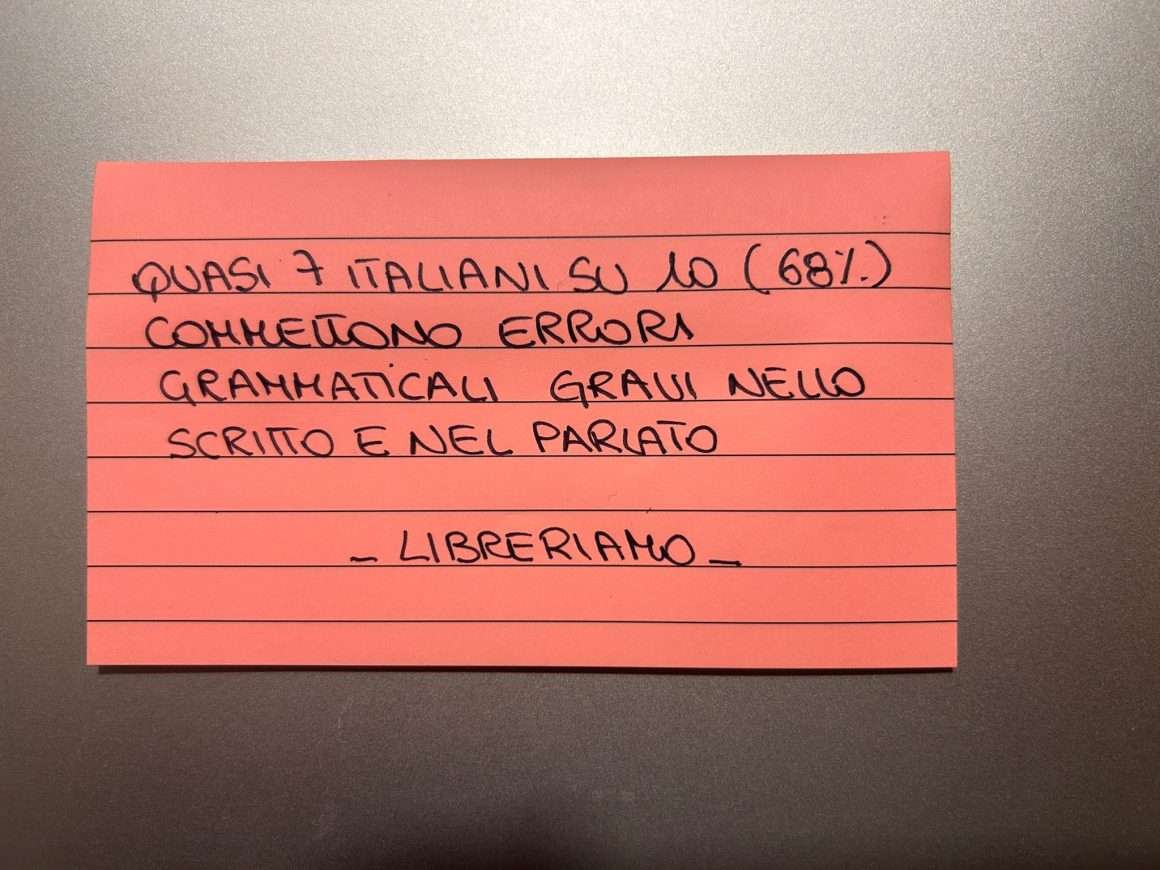 QUASI 7 ITALIANI SU 10 (68%)
COMMETTONO ERRORI
GRAMMATICALI GRAVI NELLO
SCRITTO E NEL PARLATO
- LIBRERIAMO -